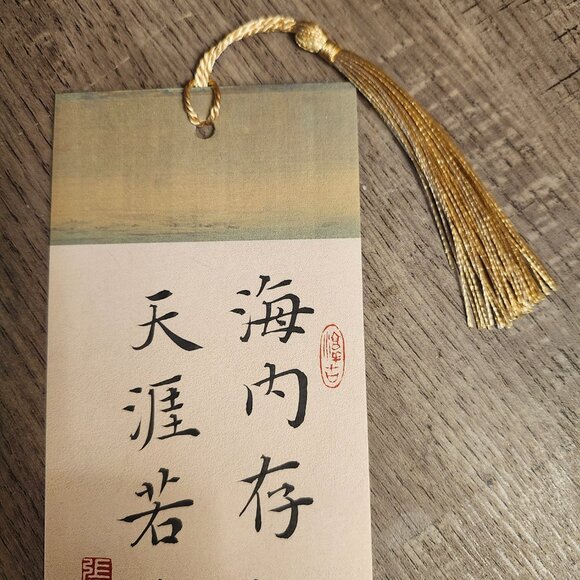 海内存
天涯若
張